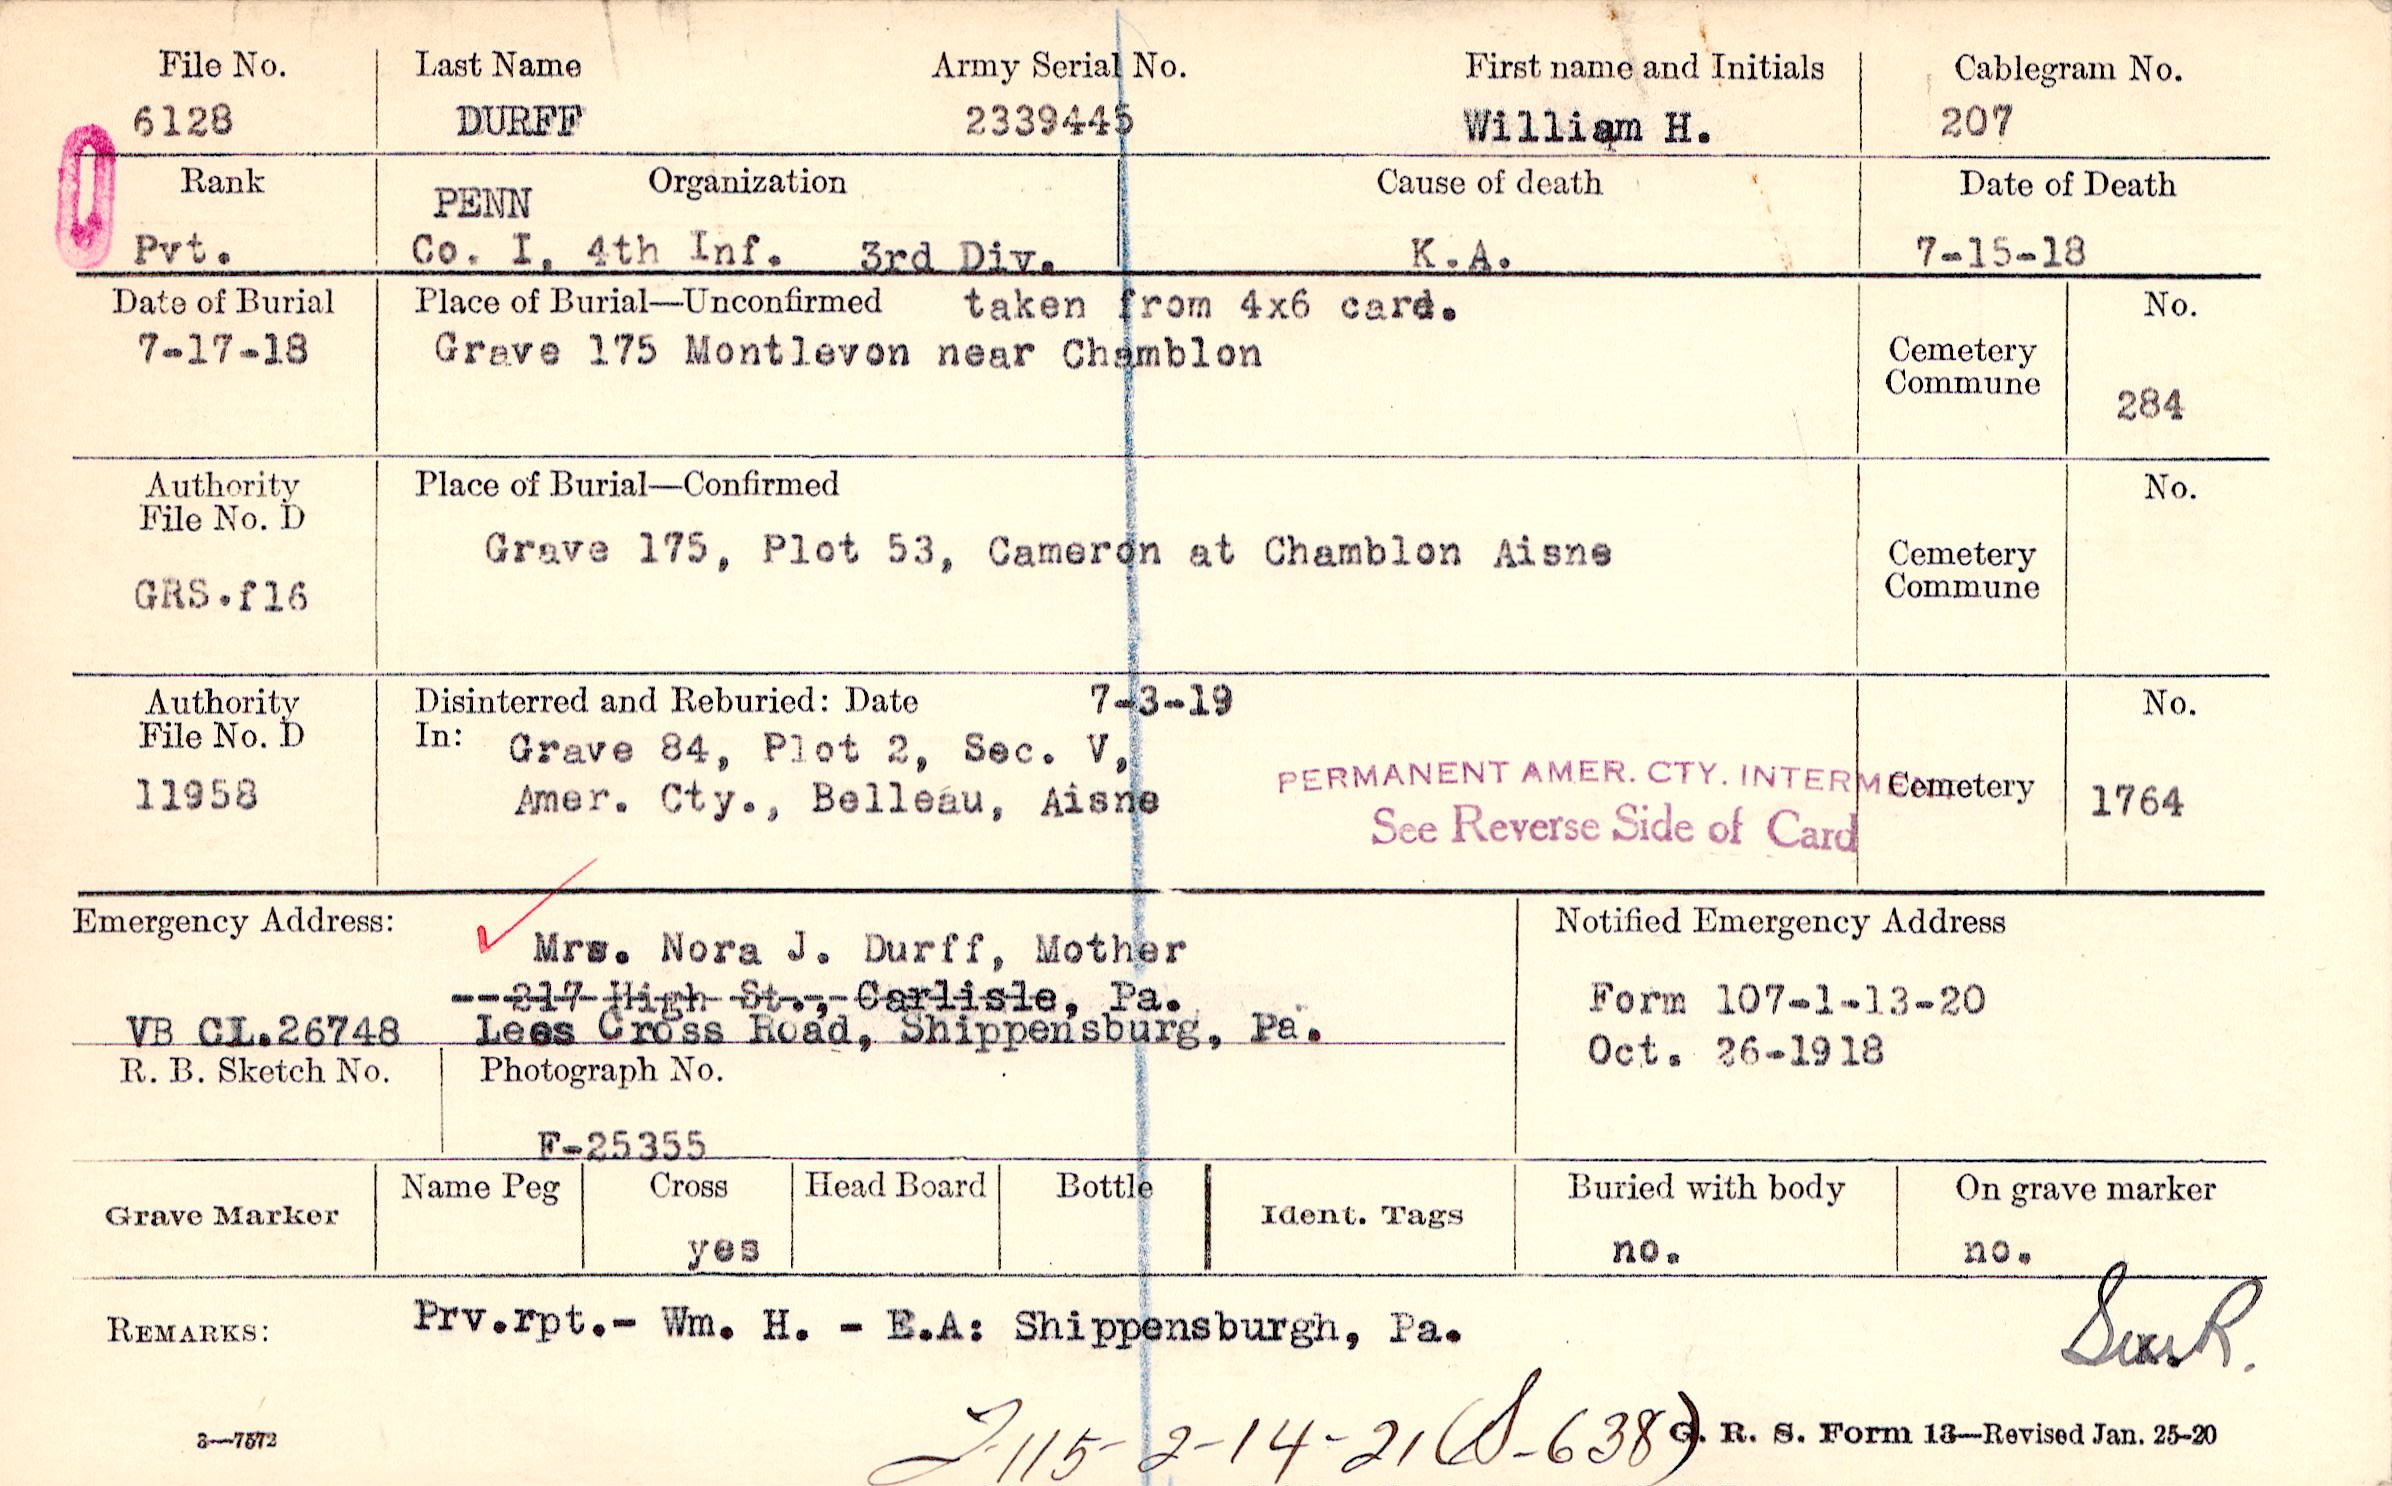 File No. Last Name Army Serial No. First name and Initials Cablegram No.
6128 DURFF 2339445 William H. 207
Rank Organization Cause of death Date of Death
PENN
Pvt. Co. I, 4th Inf. 3rd Div. K.A. 7-15-18
Date of Burial Place of Burial—Unconfirmed taken from 4x6 card. No.
7-17-18 Grave 175 Montlevon near Chamblon Cemetery
Commune
284
Authority Place of Burial—Confirmed No.
File No. D
Grave 175, Plot 53, Cameron at Chamblon Aisne Cemetery
GRS.f16 Commune
Authority Disinterred and Reburied: Date 7-3-19 No.
File No. D In: Grave 84, Plot 2, Sec. V,
PERMANENT AMER. CTY. INTERMENT
11958 Amer. Cty., Belleau, Aisne Cemetery 1764
See Reverse Side of Card
Emergency Address: Notified Emergency Address
Mrs. Nora J. Durff, Mother
--217 High St., Carlisle, Pa. Form 107-1-13-20
VB CL.26748 Lees Cross Road, Shippensburg, Pa.
Oct. 26-1918
R. B. Sketch No. Photograph No.
F-25355
Name Peg Cross Head Board Bottle Buried with body On grave marker
Grave Marker Ident. Tags
yes no. no.
REMARKS: Prv.rpt.- Wm. H. - E.A: Shippensburgh, Pa.
115-2-14-21 (S-638)
3—7572 G. R. S. Form 13—Revised Jan. 25-20